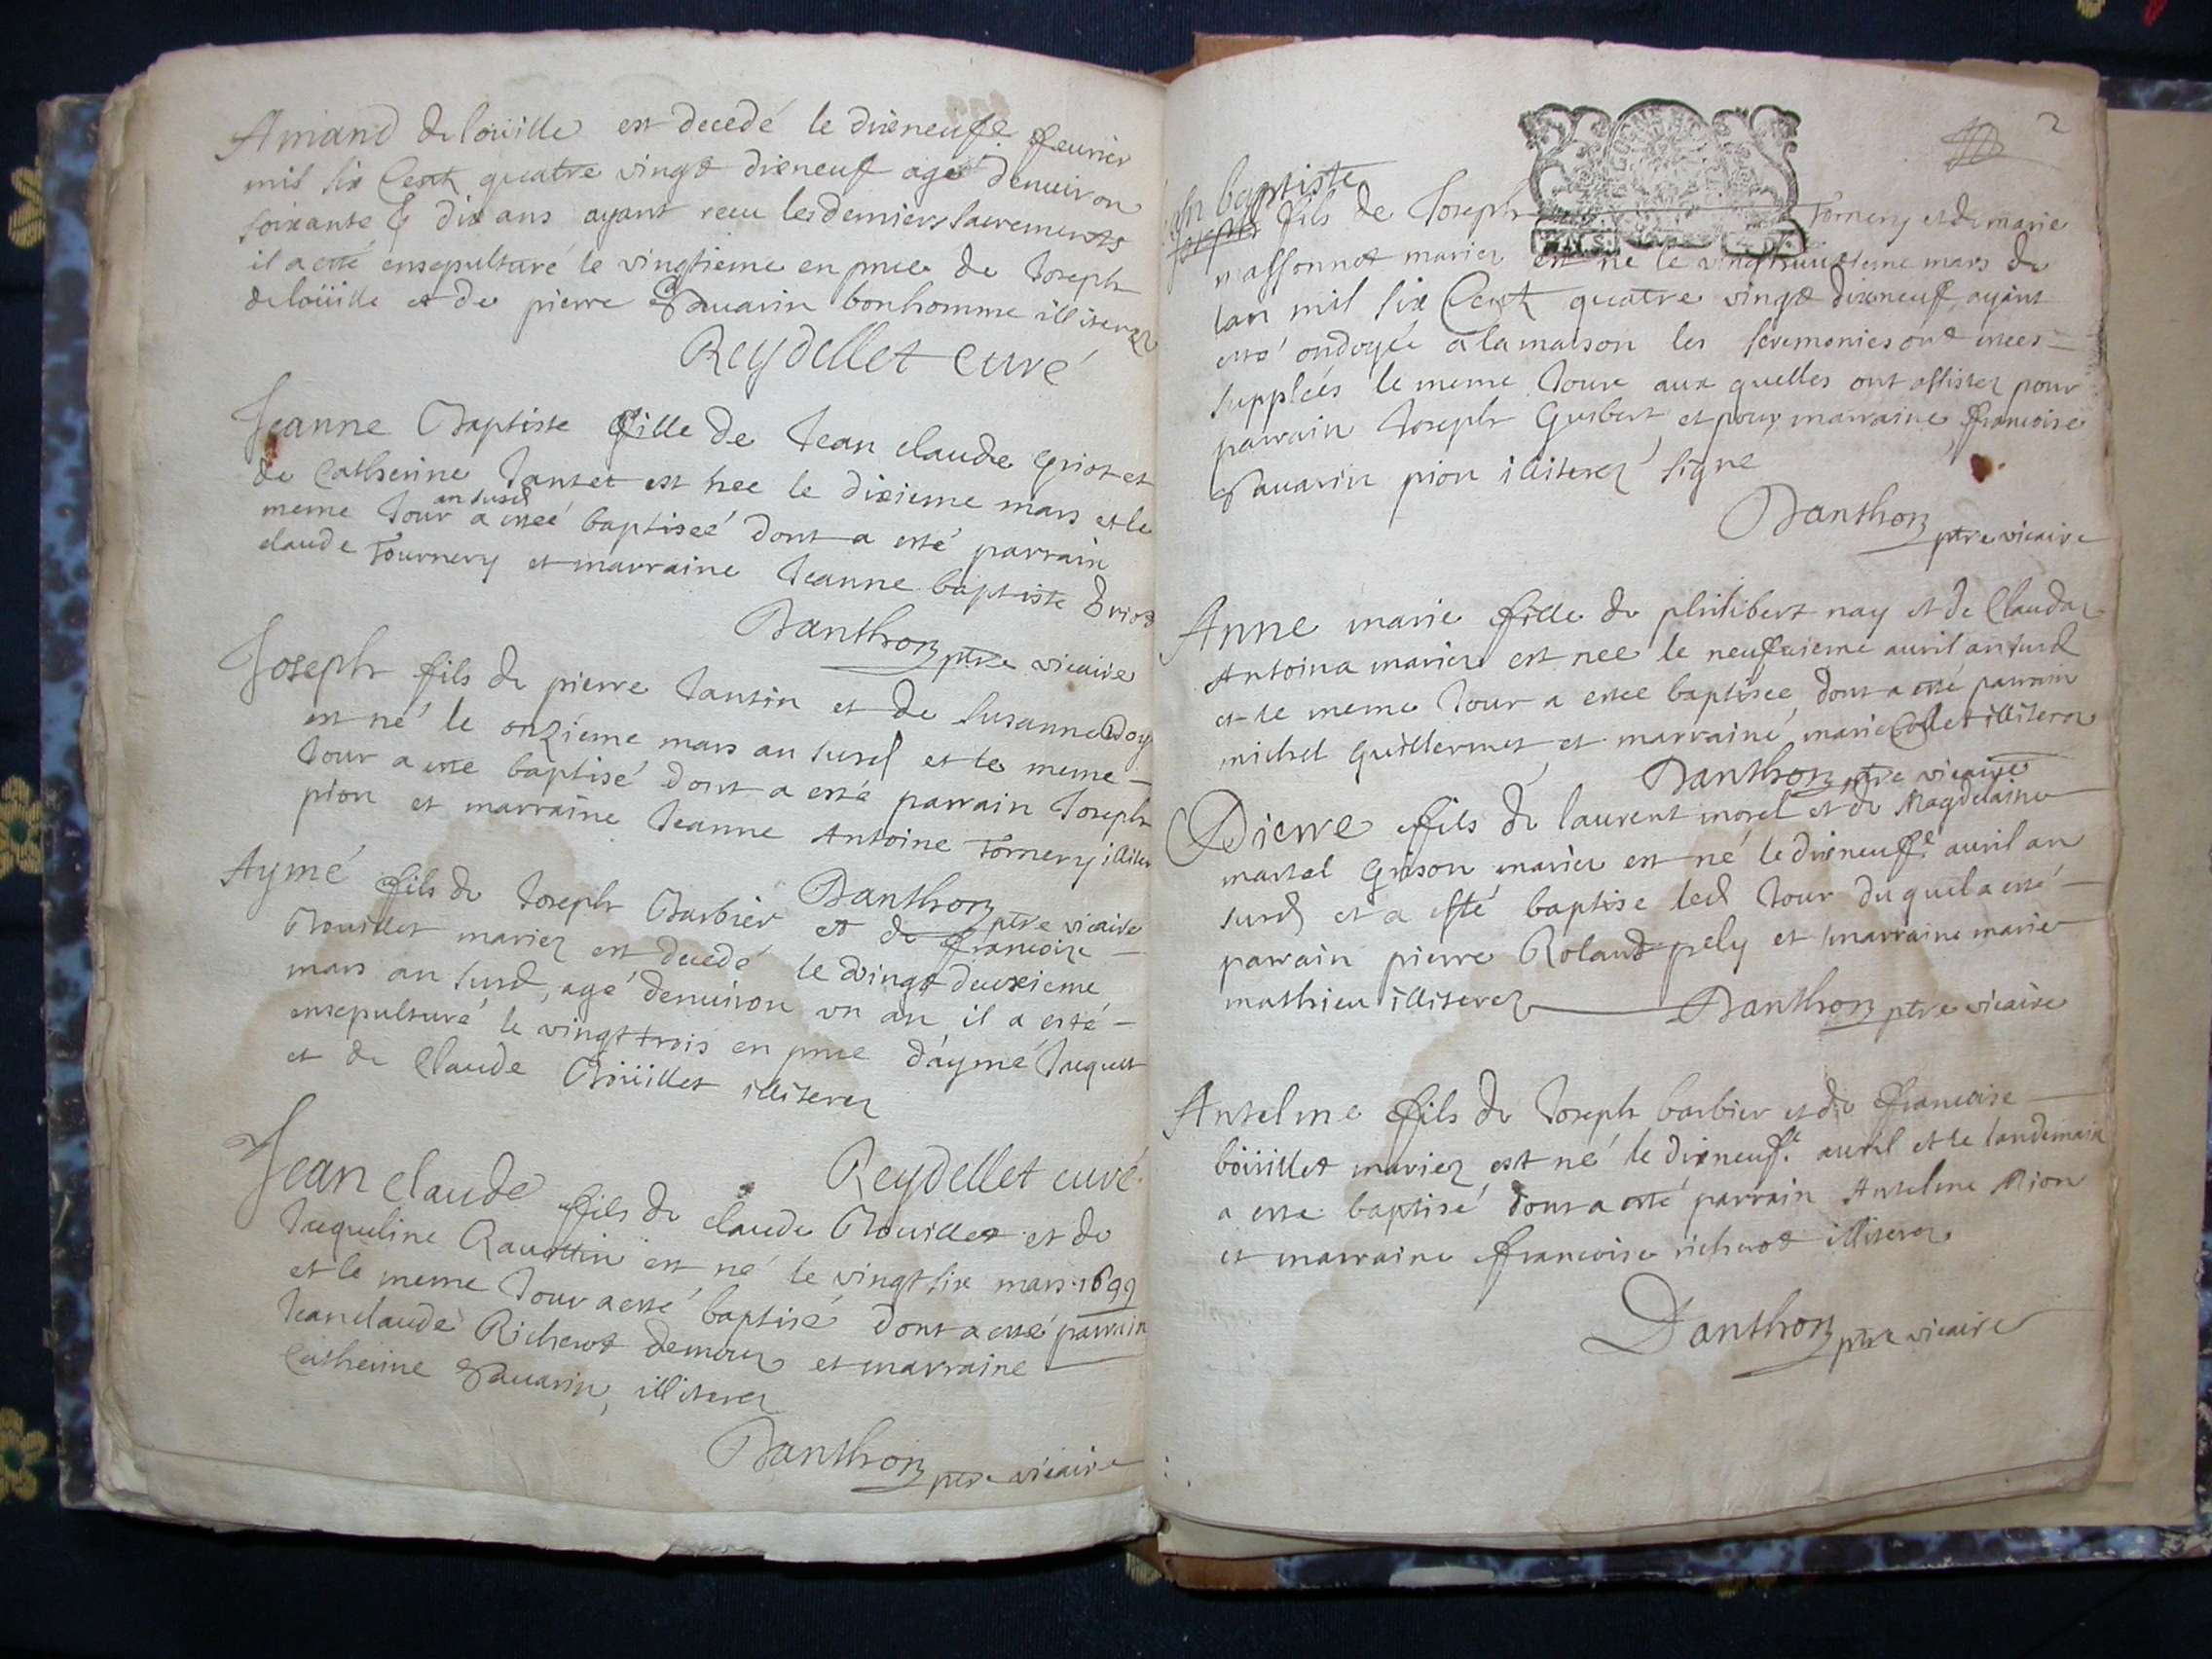 Amand de loüille est decedé le dixneufe feurier
mil six Cent quatre vingt dixneuf agé denuiron
soixante & dix ans ayant receu les derniers sacrements
il a esté ensepulturé le vingtieme en pnce de Joseph
de loüille et de pierre Sauarin bonhomme illiterez
Reydellet curé
Jeanne Baptiste fille de Jean claude Griot et
de Catherine Jantet est nee le dixieme mars et le
an susd
meme Jour a esteé baptiseé dont a esté parrain
claude Tournery et marraine Jeanne baptiste
Danthon ptre vicaire
Joseph fils de pierre Jantin et de Susanne
est né le onzieme mars an susd et le meme
Jour a esté baptisé dont a esté parrain Joseph
pion et marraine Jeanne Antoine Tornery
Danthon ptre vicaire
Aymé fils de Joseph Barbier et de francoise
Boüillet mariez est decedé le vingt deuxieme
mars an susd, agé denuiron un an il a esté
ensepulturé le vingt trois en pnce d'aymé Jaquet
et de Claude Boüillet illiterez
Reydellet curé
Jean claude fils de claude Boüillet et de
Jaqueline est né le vingt six mars 1699
et le meme Jour a esté baptisé dont a esté parrain
Jean claude Richerot et marraine
Catherine Sauarin, illiterez
Danthon ptre vicaire
2
baptiste
fils de Joseph Tornery et de marie
massonnet mariez est né le mars de
lan mil six Cent quatre vingt dixneuf, ayant
esté ondoyée a la maison les seremonies ont estees
suppleés le meme Jour aux quelles ont assistez pour
parrain Joseph Guibert et pour marraine francoise
Sauarin pion illiterez signé
Danthon ptre vicaire
Anne marie fille de philibert nay et de Clauda
Antoina mariez est nee le neufuieme auril an susd
et le meme Jour a estee baptisee, dont a esté parrain
michel Guillermet et marraine marie Collet illiterez
Danthon ptre vicaire
Pierre fils de laurent morel et de Magdelaine
martel Grison mariez est né le dixneufe auril an
susd et a esté baptise led Jour duquel a esté
parrain pierre Roland pely et marraine marie
mathieu illiterez Danthon ptre vicaire
Antelme fils de Joseph barbier et de francoise
boüillet mariez est né le dixneufe auril et le landemain
a esté baptisé dont a esté parrain Antelme pion
et marraine francoise richerot illiterez
Danthon ptre vicaire